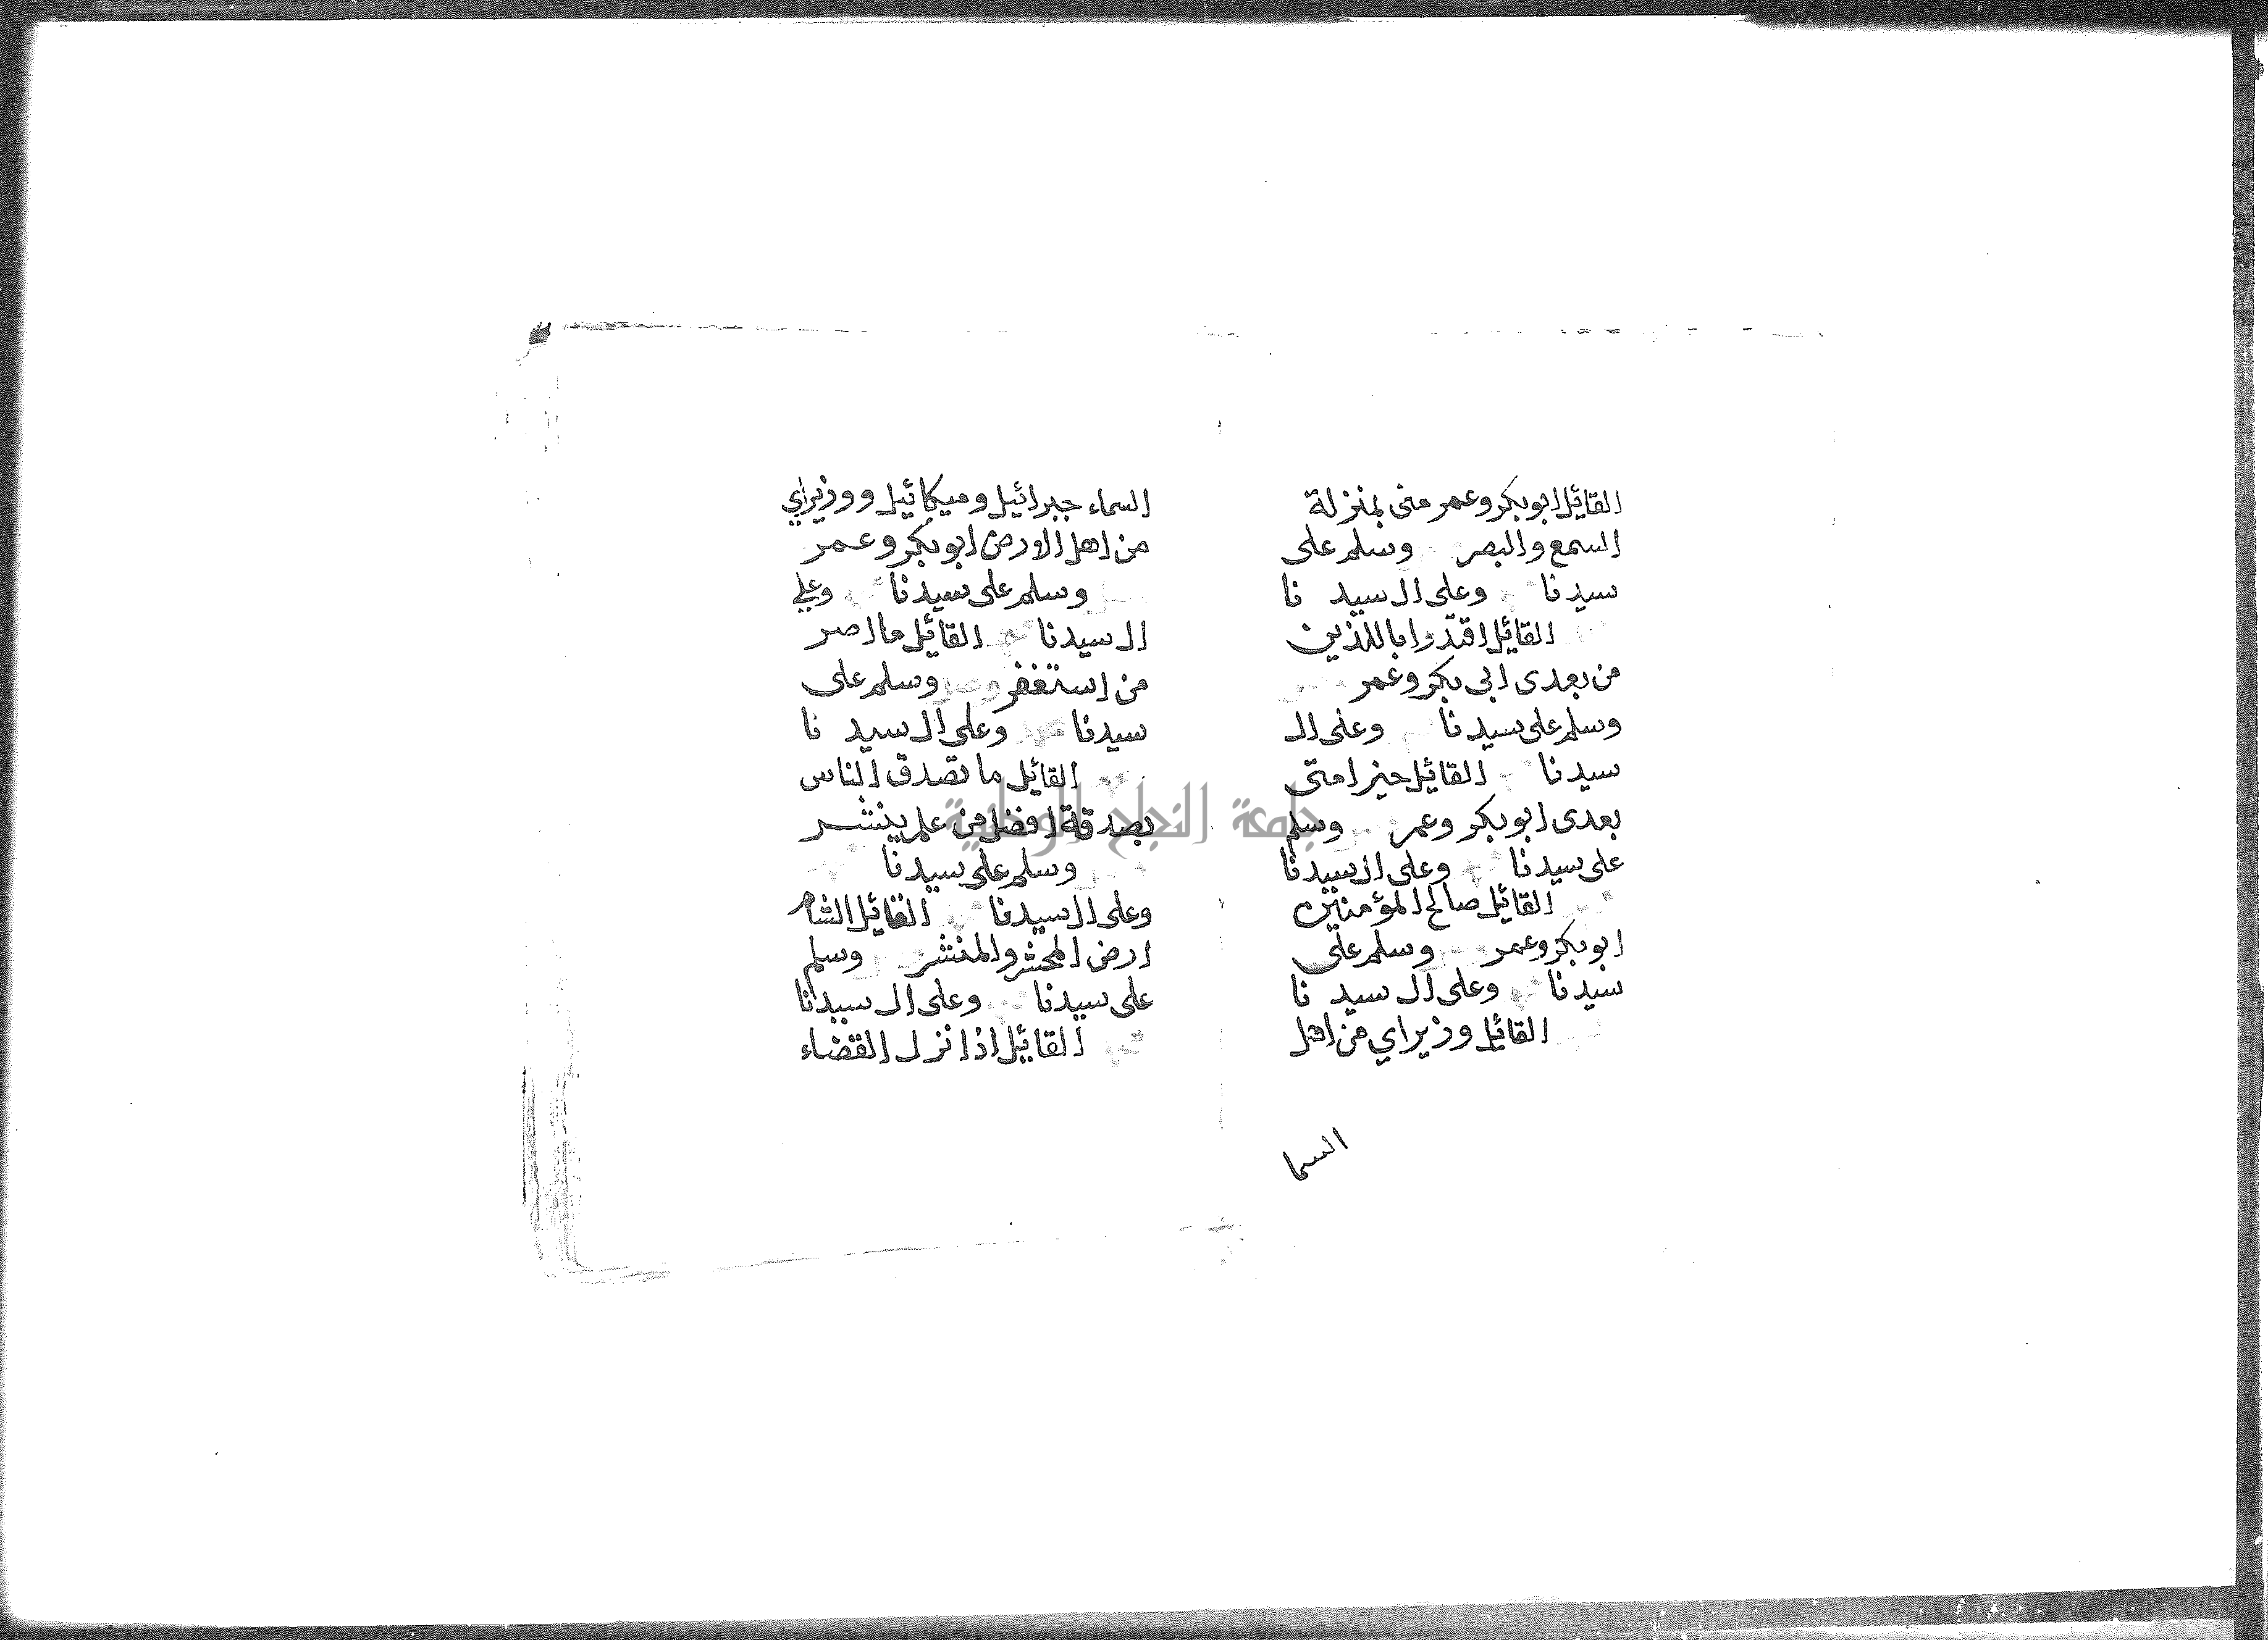 القائل ابو بكر وعمر منى بمنزلة
السمع والبصر وسلم على
سيدنا وعلى ال سيد نا
القائل اقتدوا باللذين
من بعدى ابى بكر وعمر
وسلم على سيدنا وعلى ال
سيدنا القائل خير امتى
بعدى ابو بكر وعمر وسلم
على سيدنا وعلى ال سيدنا
القائل صالح المؤمنين
ابو بكر وعمر وسلم على
سيدنا وعلى ال سيد نا
القائل وزيراي من اهل
السما
السماء جبرائيل وميكائيل ووزيراي
من اهل الارض ابو بكر وعمر
وسلم على سيدنا وعلي
ال سيدنا القائل ما اصر
من استغفر وسلم على
سيدنا وعلى ال سيد نا
القائل ما تصدق الناس
بصدقة افضل من علم ينشر
وسلم على سيدنا
وعلى ال سيدنا القائل الشام
ارض المحشر والمنشر وسلم
على سيدنا وعلى ال سيدنا
القائل اذا نزل القضاء
جامعة النجاح الوطنية